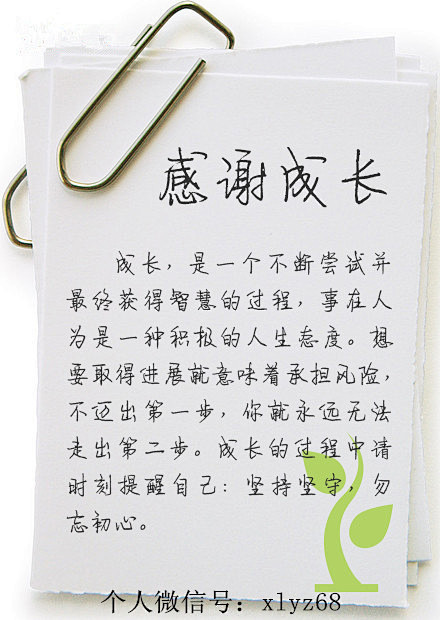 感谢成长
成长，是一个不断尝试并
最终获得智慧的过程，事在人
为是一种积极的人生态度。想
要取得进展就意味着承担风险，
不迈出第一步，你就永远无法
走出第二步。成长的过程中请
时刻提醒自己：坚持坚守，勿
忘初心。
个人微信号：xlyz68